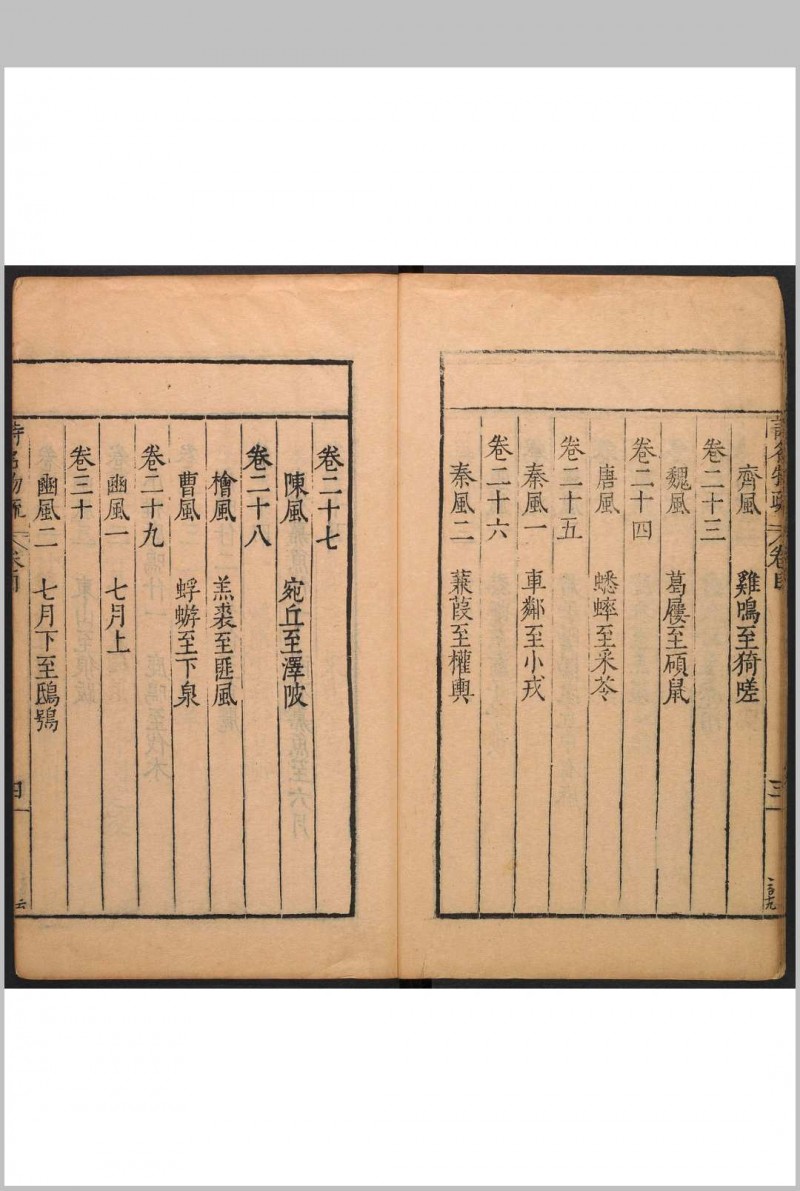 齊風 雞鳴至猗嗟
卷二十三
魏風 葛屨至碩鼠
卷二十四
唐風 蟋蟀至采苓
卷二十五
秦風一 車鄰至小戎
卷二十六
秦風二 蒹葭至權輿
卷二十七
陳風 宛丘至澤陂
卷二十八
檜風 羔裘至匪風
曹風 蜉蝣至下泉
卷二十九
豳風一 七月上
卷三十
豳風二 七月下至鴟鴞